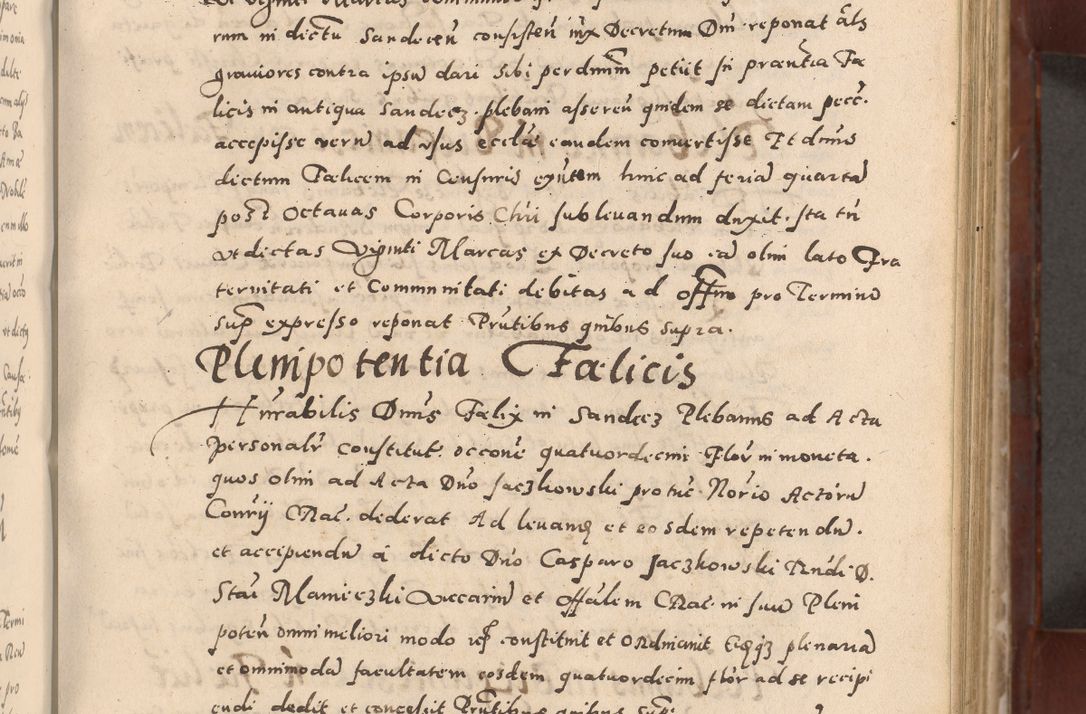 rum in dictu Sandecen consisten iux Decretum Dni reponat als
grauiores contra ipsu dari sibi per dnum petiit In praentia Fæ
licis in antiqua Sandecz. plebani asseren quidem se dictam pecc.
accepisse veru ad vsus ecclae eandem convertisse Et dnus
dictum Fælicem in Censuris exntem hinc ad feria quarta
post Octauas Corporis Chri subleuandum duxit. ita tn
vt dictas Viginti Marcas ex Decreto suo ea olim lato Fra
ternitati et Communitati debitas ad offm pro Termino
sup expresso reponat Prntibus quibus supra.
Plenipotentia Fælicis
Hnrabilis Dnus Fælix in Sandecz Plebanus ad Acta
personalr constitut. occone quatuordecim Flor in moneta.
quos olim ad Acta Dno Jaczkowski pro tuc Norio Actoru
Conrij Crac. dederat Ad leuand et eosdem repetendu.
et accipiendu a dicto Dno Casparo Jaczkowski Rndu D.
Stan Mamieczki Viccariu et offalem Crac. in suu Pleni
poten omni meliori modo constituit et Ordinauit plenaria
et omnimoda facultatem eosdem quatuordecim flor ad se recipi
endi dedit et concessit Prntibus quibus sup: